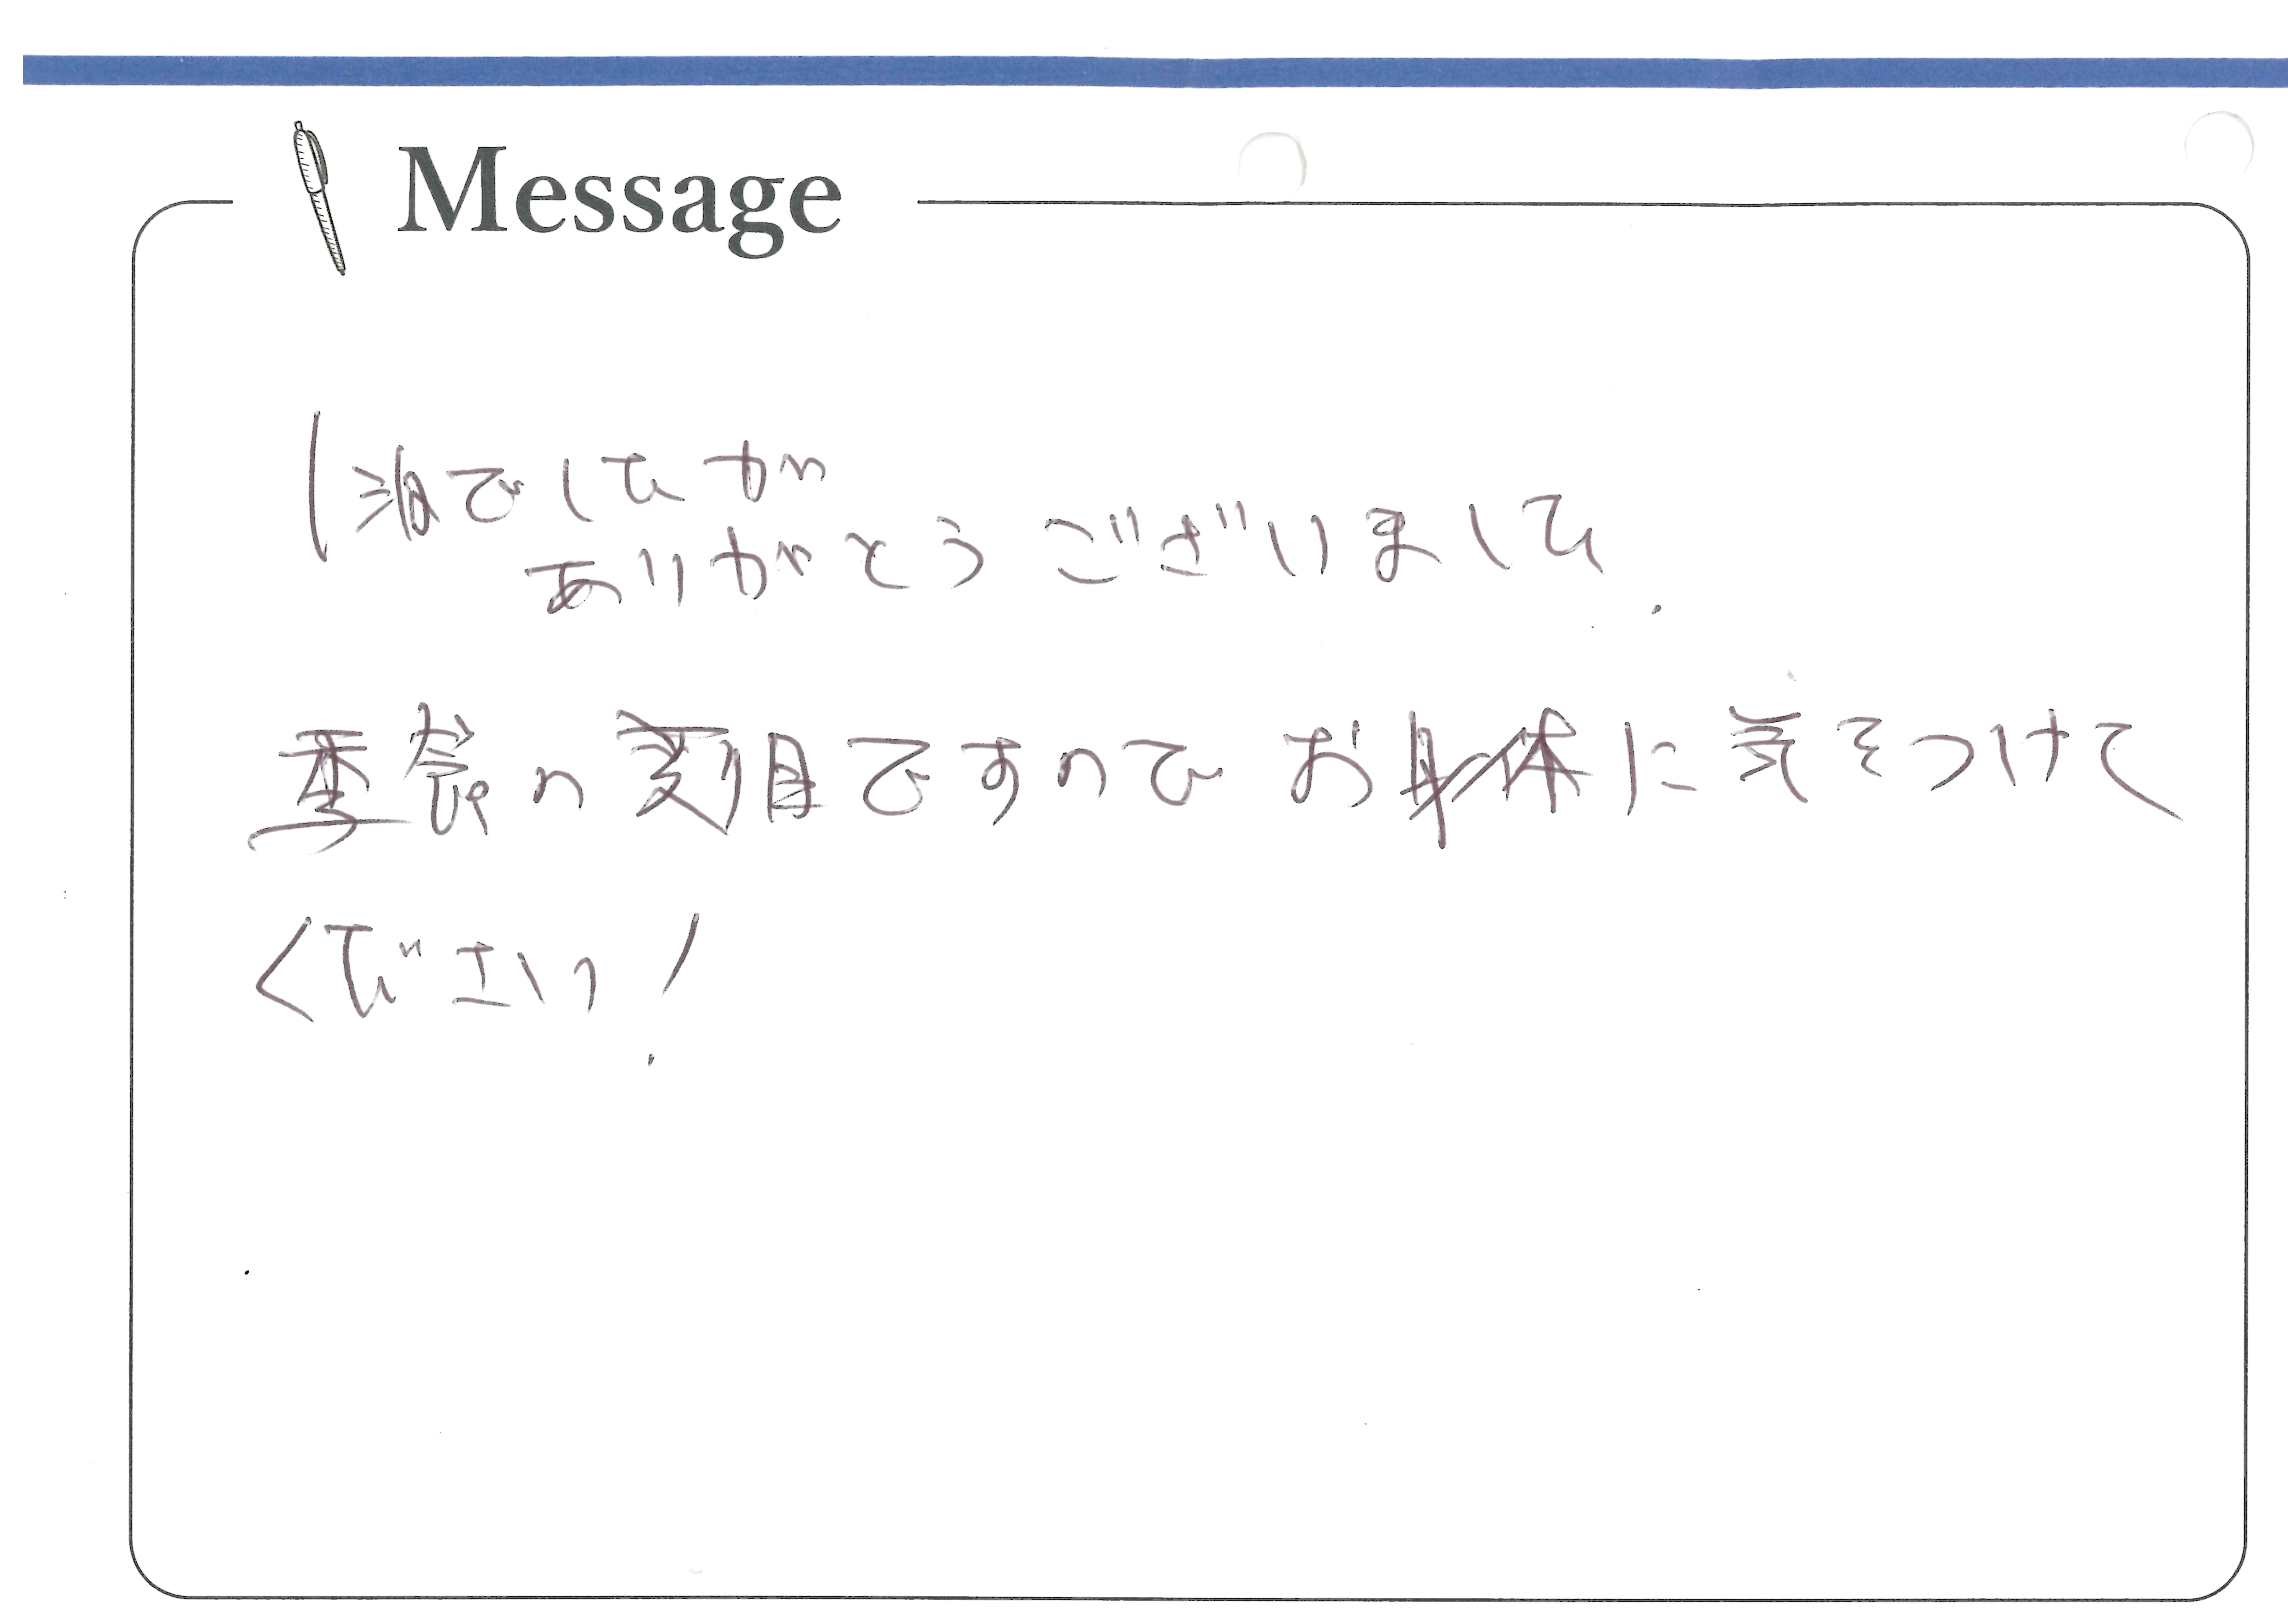 Message
1泊でしたが
ありがとうございました.
季節の変り目ですのでお身体に気をつけて
ください!